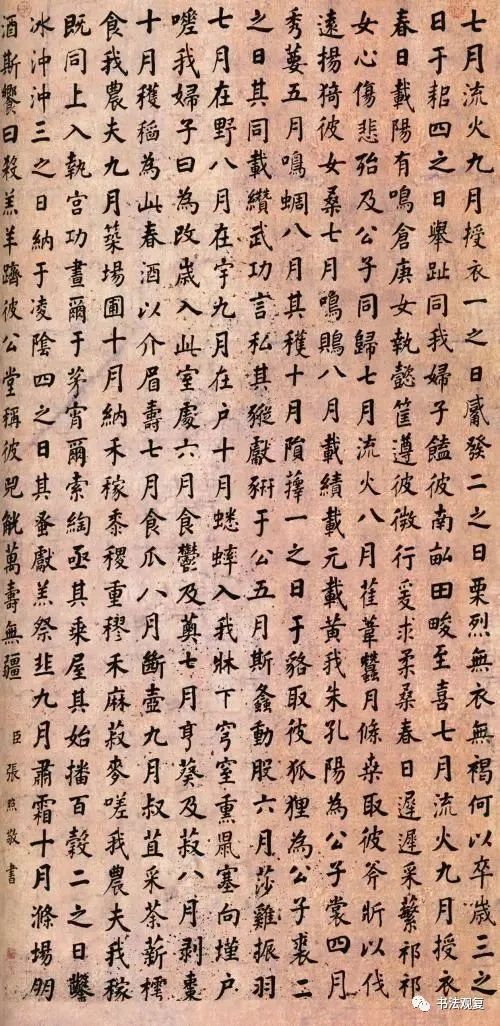 七月流火九月授衣一之日觱發二之日栗烈無衣無褐何以卒歲三之
日于耜四之日舉趾同我婦子饁彼南畝田畯至喜七月流火九月授衣
春日載陽有鳴倉庚女執懿筐遵彼微行爰求柔桑春日遲遲采蘩祁祁
女心傷悲殆及公子同歸七月流火八月萑葦蠶月條桑取彼斧斨以伐
遠揚猗彼女桑七月鳴鵙八月載績載元載黃我朱孔陽為公子裳四月
秀葽五月鳴蜩八月其穫十月隕蘀一之日于貉取彼狐狸為公子裘二
之日其同載纘武功言私其豵獻豜于公五月斯螽動股六月莎雞振羽
七月在野八月在宇九月在户十月蟋蟀入我牀下穹窒熏鼠塞向墐户
嗟我婦子曰為改歲入此室處六月食鬱及薁七月亨葵及菽八月剥棗
十月穫稻為此春酒以介眉壽七月食瓜八月斷壺九月叔苴采荼薪樗
食我農夫九月築場圃十月納禾稼黍稷重穋禾麻菽麥嗟我農夫我稼
既同上入執宮功晝爾于茅宵爾索綯亟其乘屋其始播百穀二之日鑿
冰沖沖三之日納于凌陰四之日其蚤獻羔祭韭九月肅霜十月滌場朋
酒斯饗曰殺羔羊躋彼公堂稱彼兕觥萬壽無疆
臣張照敬書
书法观复